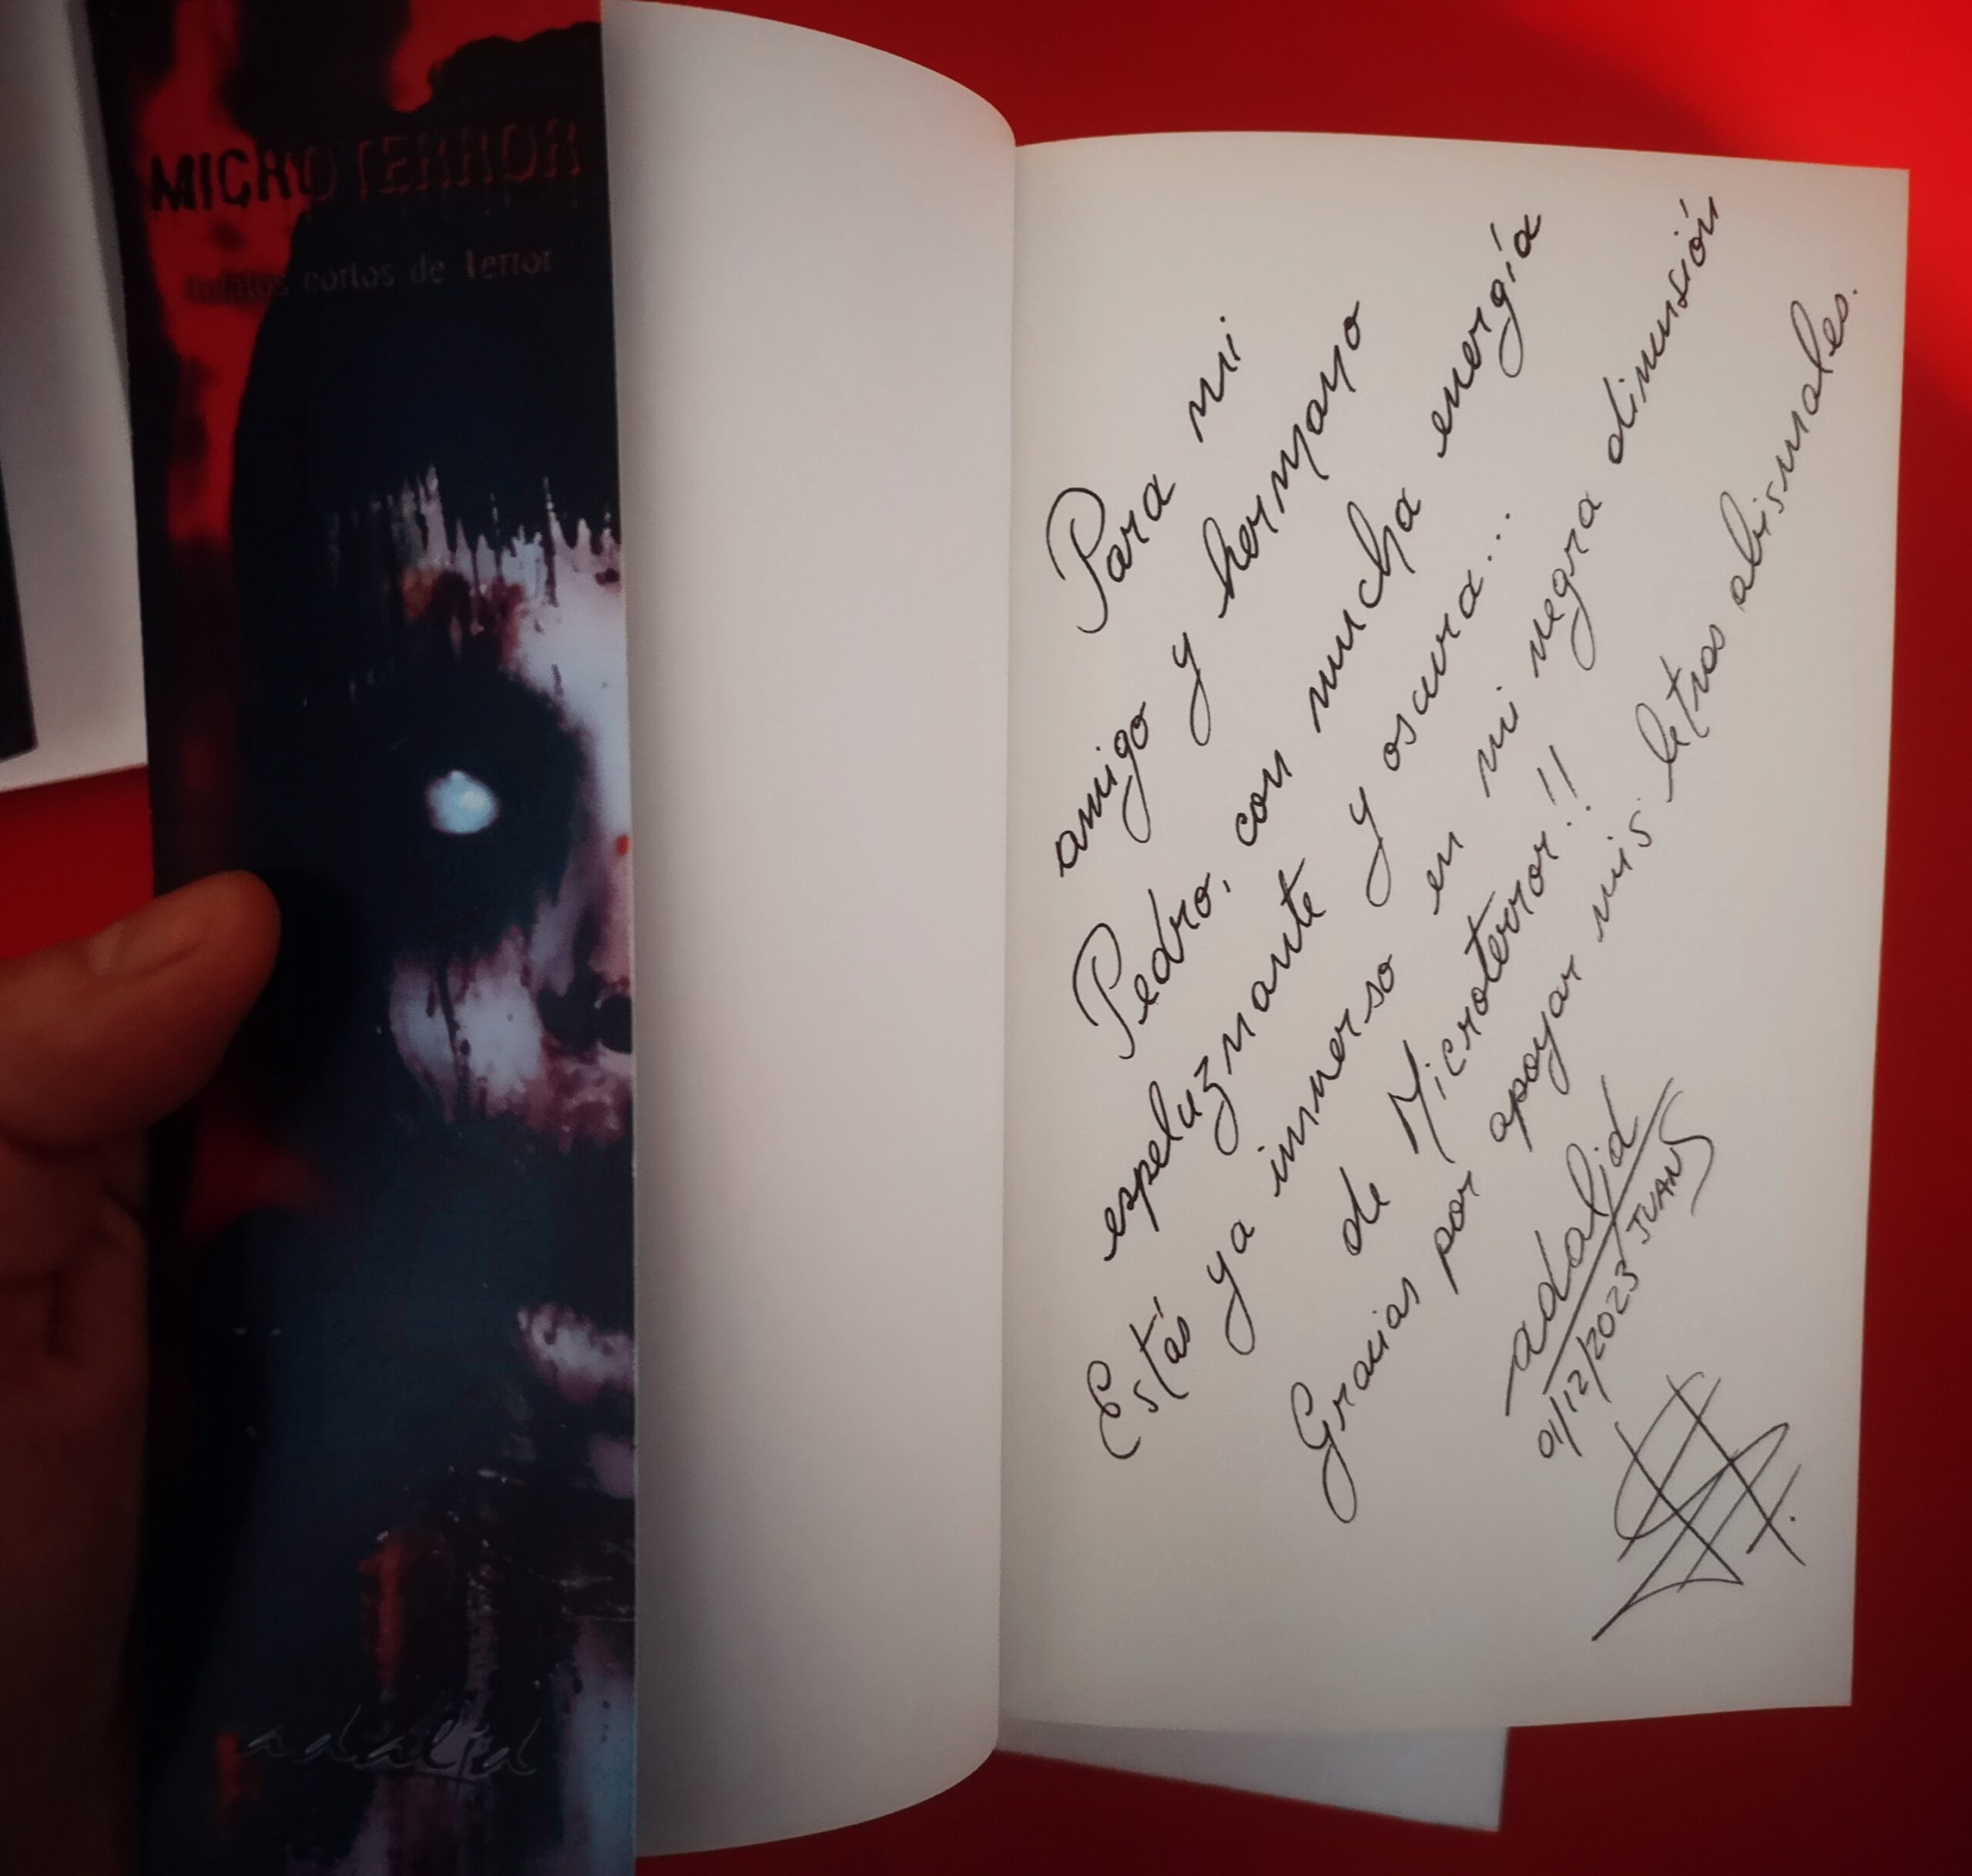 MICROTERROR
cortos de terror
adalid
Para mi
amigo y hermano
Pedro, con mucha energía
espeluznante y oscura...
Estás ya inmerso en mi negra dimensión
de Microterror!!
Gracias por apoyar mis letras abismales.
adalid
01/12/2023 JUANS